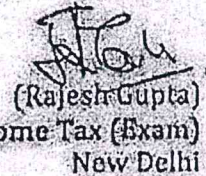 (Rajesh Gupta)
ome Tax (Exam)
New Delhi